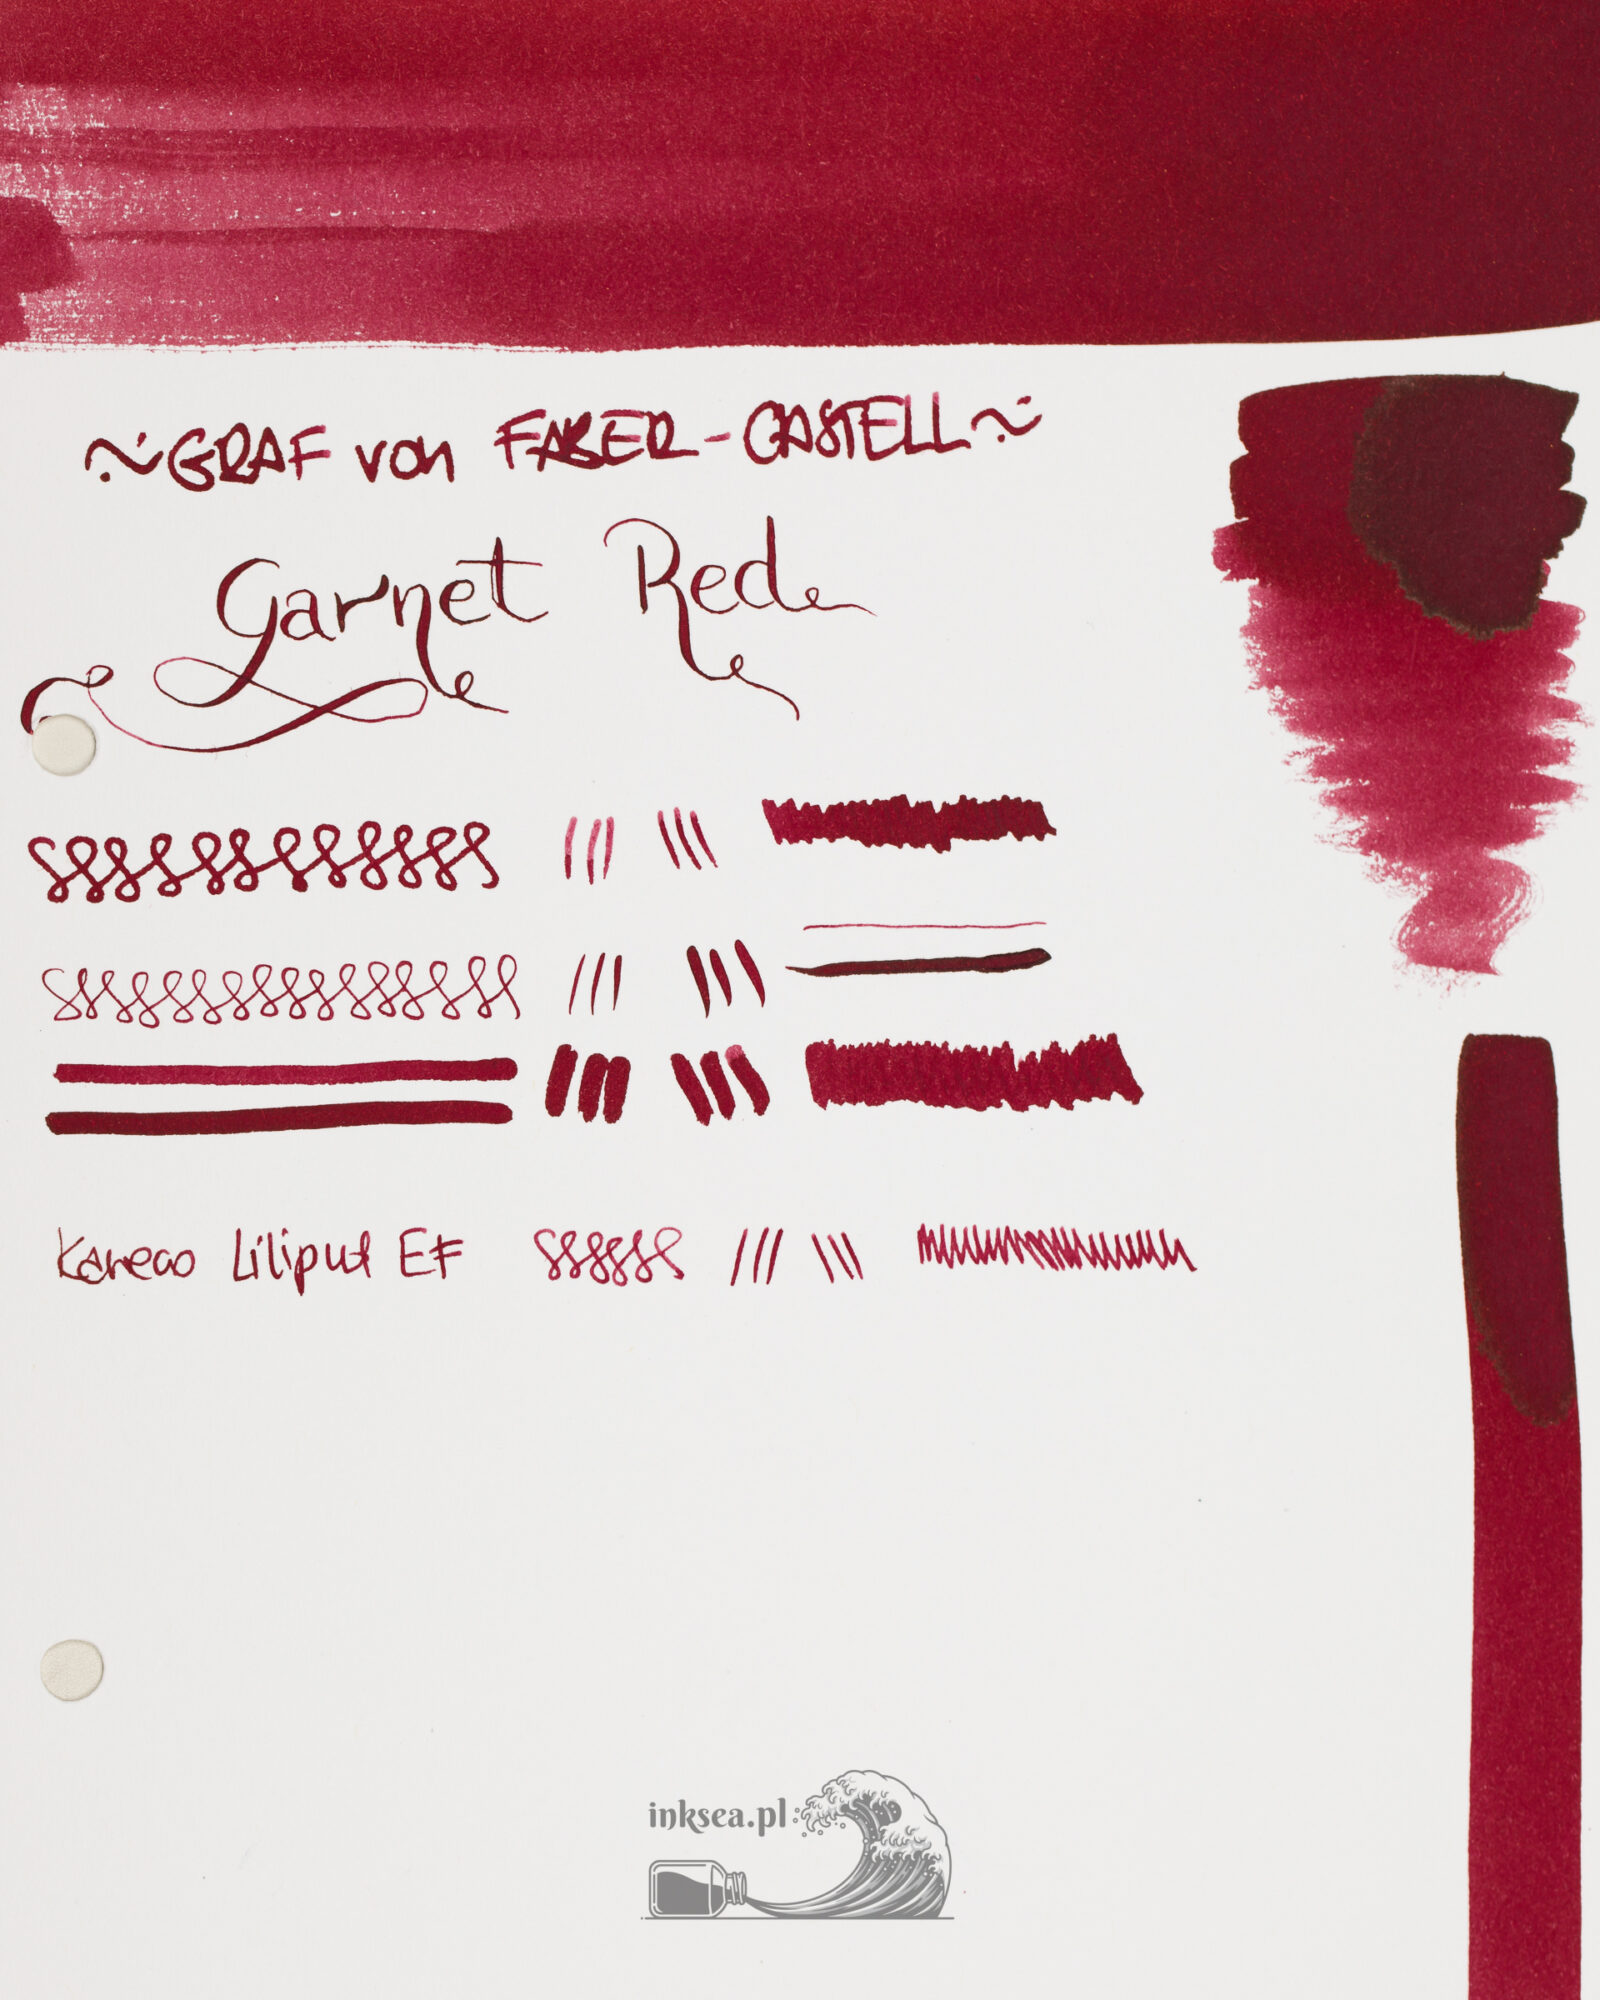 ~GRAF von FABER-CASTELL~
Garnet Red
Kaweco Liliput EF
inksea.pl